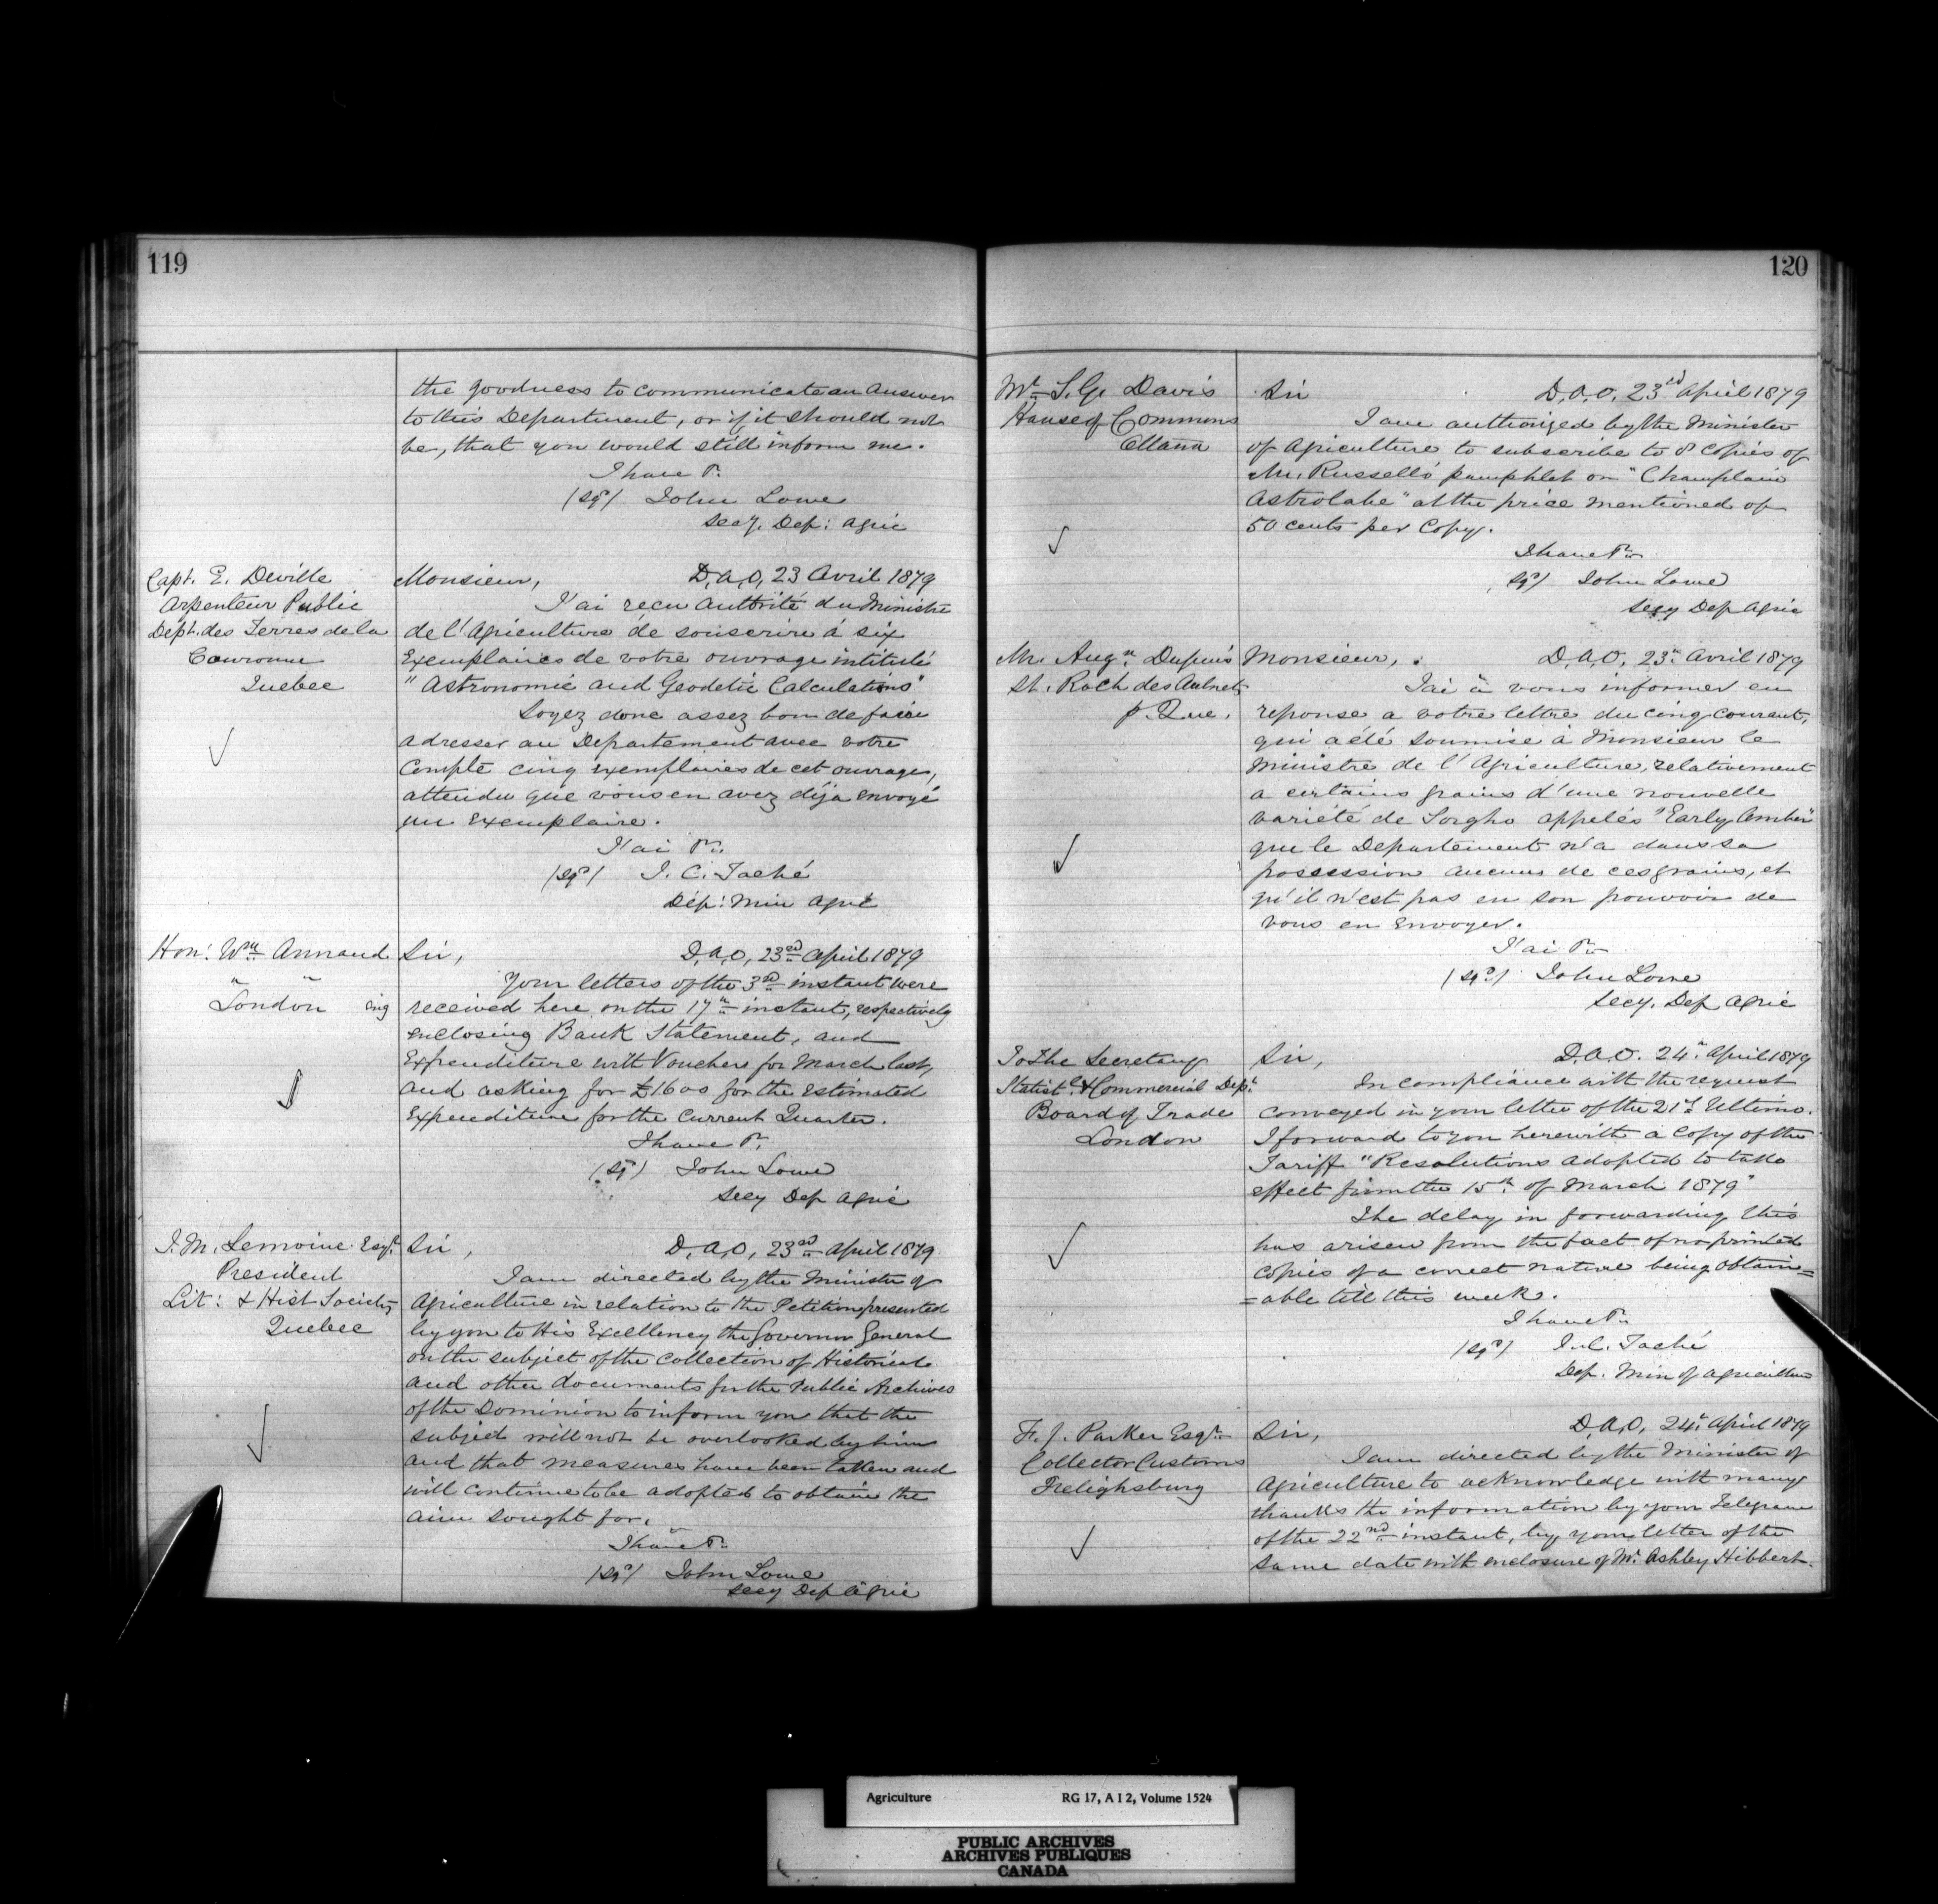 119
the goodness to communicate an answer
to this Department, or if it should not
be, that you would still inform me.
I have &c.
(sgd) John Lowe
Secy. Dep: Agric
Capt. E. Deville
Arpenteur Public
Dept. des Terres de la
Couronne
Quebec
Monsieur, D.A.O, 23 Avril 1879
J'ai recu autorité du Ministre
de l'Agriculture de souscrire á six
Exemplaires de votre ouvrage intitulé
"Astronomic and Geodetic Calculations"
Soyez donc assez bon de faire
adresser au Departement avec votre
Compte cinq exemplaires de cet ouvrage,
attendu que vous en avez déja envoyé
un Exemplaire.
J'ai &c.
(sgd) J. C. Taché
Dép: Min Agric
Hon: Wm Annand
" "
London Eng
Sir, D.A.O, 23rd April 1879
Your letters of the 3rd instant were
received here on the 17th instant, respectively
enclosing Bank Statement, and
Expenditure with Vouchers for March last,
and asking for £1600 for the estimated
Expenditure for the Current Quarter.
I have &c.
(sgd) John Lowe
Secy Dep Agric
J. M. Lemoine Esqr.
President
Lit: & Hist Society
Quebec
Sir, D.A.O, 23rd April 1879
I am directed by the Minister of
Agriculture in relation to the Petition presented
by you to His Excellency the Governor General
on the subject of the Collection of Historical
and other documents for the Public Archives
of the Dominion to inform you that the
subject will not be overlooked by him
and that measures have been taken and
will continue to be adopted to obtain the
aim sought for.
I have &c.
(sgd) John Lowe
Secy Dep Agric
120
Mr. S. G. Davis
House of Commons
Ottawa
Sir D.A.O, 23rd April 1879
I am authorized by the Minister
of Agriculture to subscribe to 8 Copies of
Mr. Russell's pamphlet on "Champlain
Astrolabe" at the price mentioned of
50 cents per Copy.
I have &c.
(sgd) John Lowe
Secy Dep Agric
Mr. Augte. Dupuis
St. Roch des Aulnets
P. Que.
Monsieur, D.A.O, 23 Avril 1879
J'ai à vous informer en
reponse a votre lettre du cinq courant,
qui a été soumise à Monsieur le
Ministre de l'Agriculture, relativement
a certains grains d'une nouvelle
variété de Sorgho appelés "Early Amber"
que le Departement n'a dans sa
possession aucuns de ces grains, et
qu'il n'est pas en son pouvoir de
vous en envoyer.
J'ai &c.
(sgd) John Lowe
Secy. Dep Agric
To The Secretary
Statistl. & Commercial Dept.
Board of Trade
London
Sir, D.A.O. 24th April 1879
In compliance with the request
conveyed in your letter of the 21st Ultimo.
I forward to you herewith a Copy of the
Tariff "Resolutions adopted to take
effect from the 15th of March 1879"
The delay in forwarding this
has arisen from the fact of no printed
Copies of a correct nature being obtain=
=able till this week.
I have &c.
(sgd) J. C. Taché
Dep. Min of Agriculture
F. J. Parker Esqr.
Collector Customs
Frelighsburg
Sir, D.A.O, 24th April 1879
I am directed by the Minister of
Agriculture to acknowledge with many
thanks the information by your Telegram
of the 22nd instant, by your letter of the
same date with enclosure of Mr. Ashley Hibbert.
Agriculture RG 17, A I 2, Volume 1524
PUBLIC ARCHIVES
ARCHIVES PUBLIQUES
CANADA